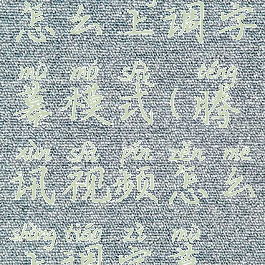 怎么上调字
mù mó shì téng
幕模式(腾
xùn shì pín zěn me
讯视频怎么
shàng tiáo zì mù
上调字幕